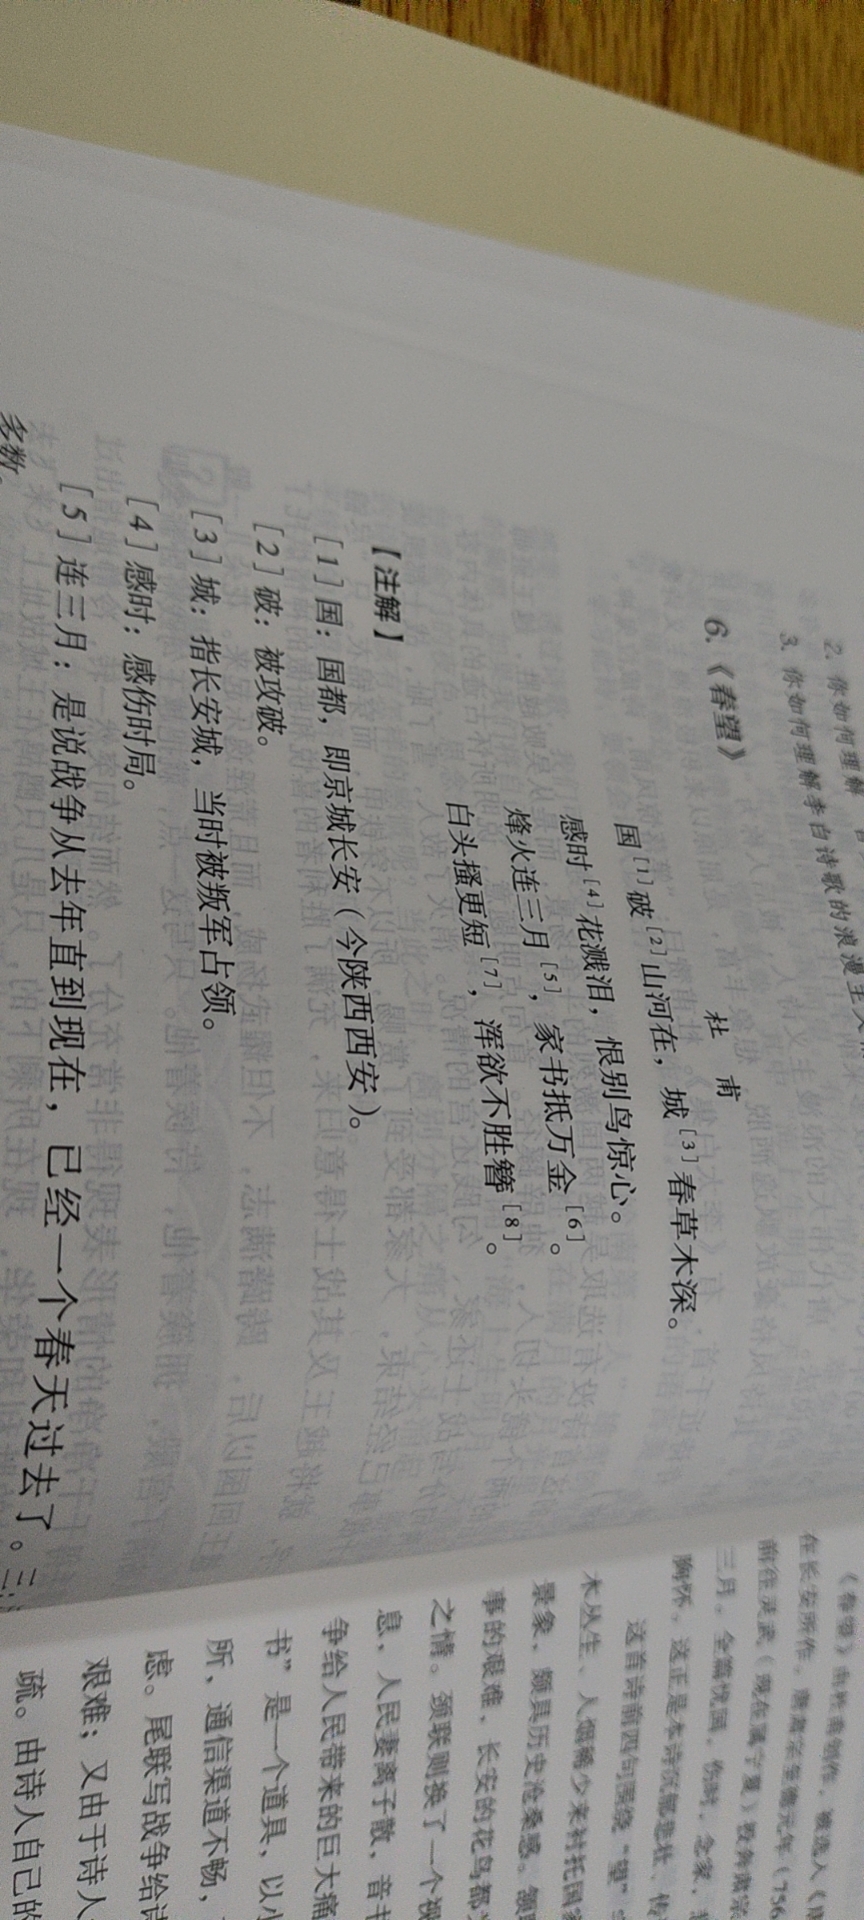 2. 你如何理解
3. 你如何理解李白诗歌的浪漫主义
6.《春望》
杜 甫
国[1]破[2]山河在，城[3]春草木深。
感时[4]花溅泪，恨别鸟惊心。
烽火连三月[5]，家书抵万金[6]。
白头搔更短[7]，浑欲不胜簪[8]。
【注解】
[1]国：国都，即京城长安（今陕西西安）。
[2]破：被攻破。
[3]城：指长安城，当时被叛军占领。
[4]感时：感伤时局。
[5]连三月：是说战争从去年直到现在，已经一个春天过去了。三
多数
《春望》由杜甫创作，被选入《
在长安所作。唐肃宗至德元年（756
前往灵武（现在属宁夏）投奔肃宗
三月。全篇忧国，伤时，念家，
胸怀。这正是本诗沉郁悲壮、传
这首诗前四句围绕“望”
木丛生、人烟稀少来衬托国家
景象，颇具历史沧桑感。颔联
事的艰难，长安的花鸟都
之情。颈联则换了一个视
息，人民妻离子散，音书
争给人民带来的巨大痛
书”是一个道具，以小
所，通信渠道不畅，
虑。尾联写战争给诗
艰难；又由于诗人
疏。由诗人自己的